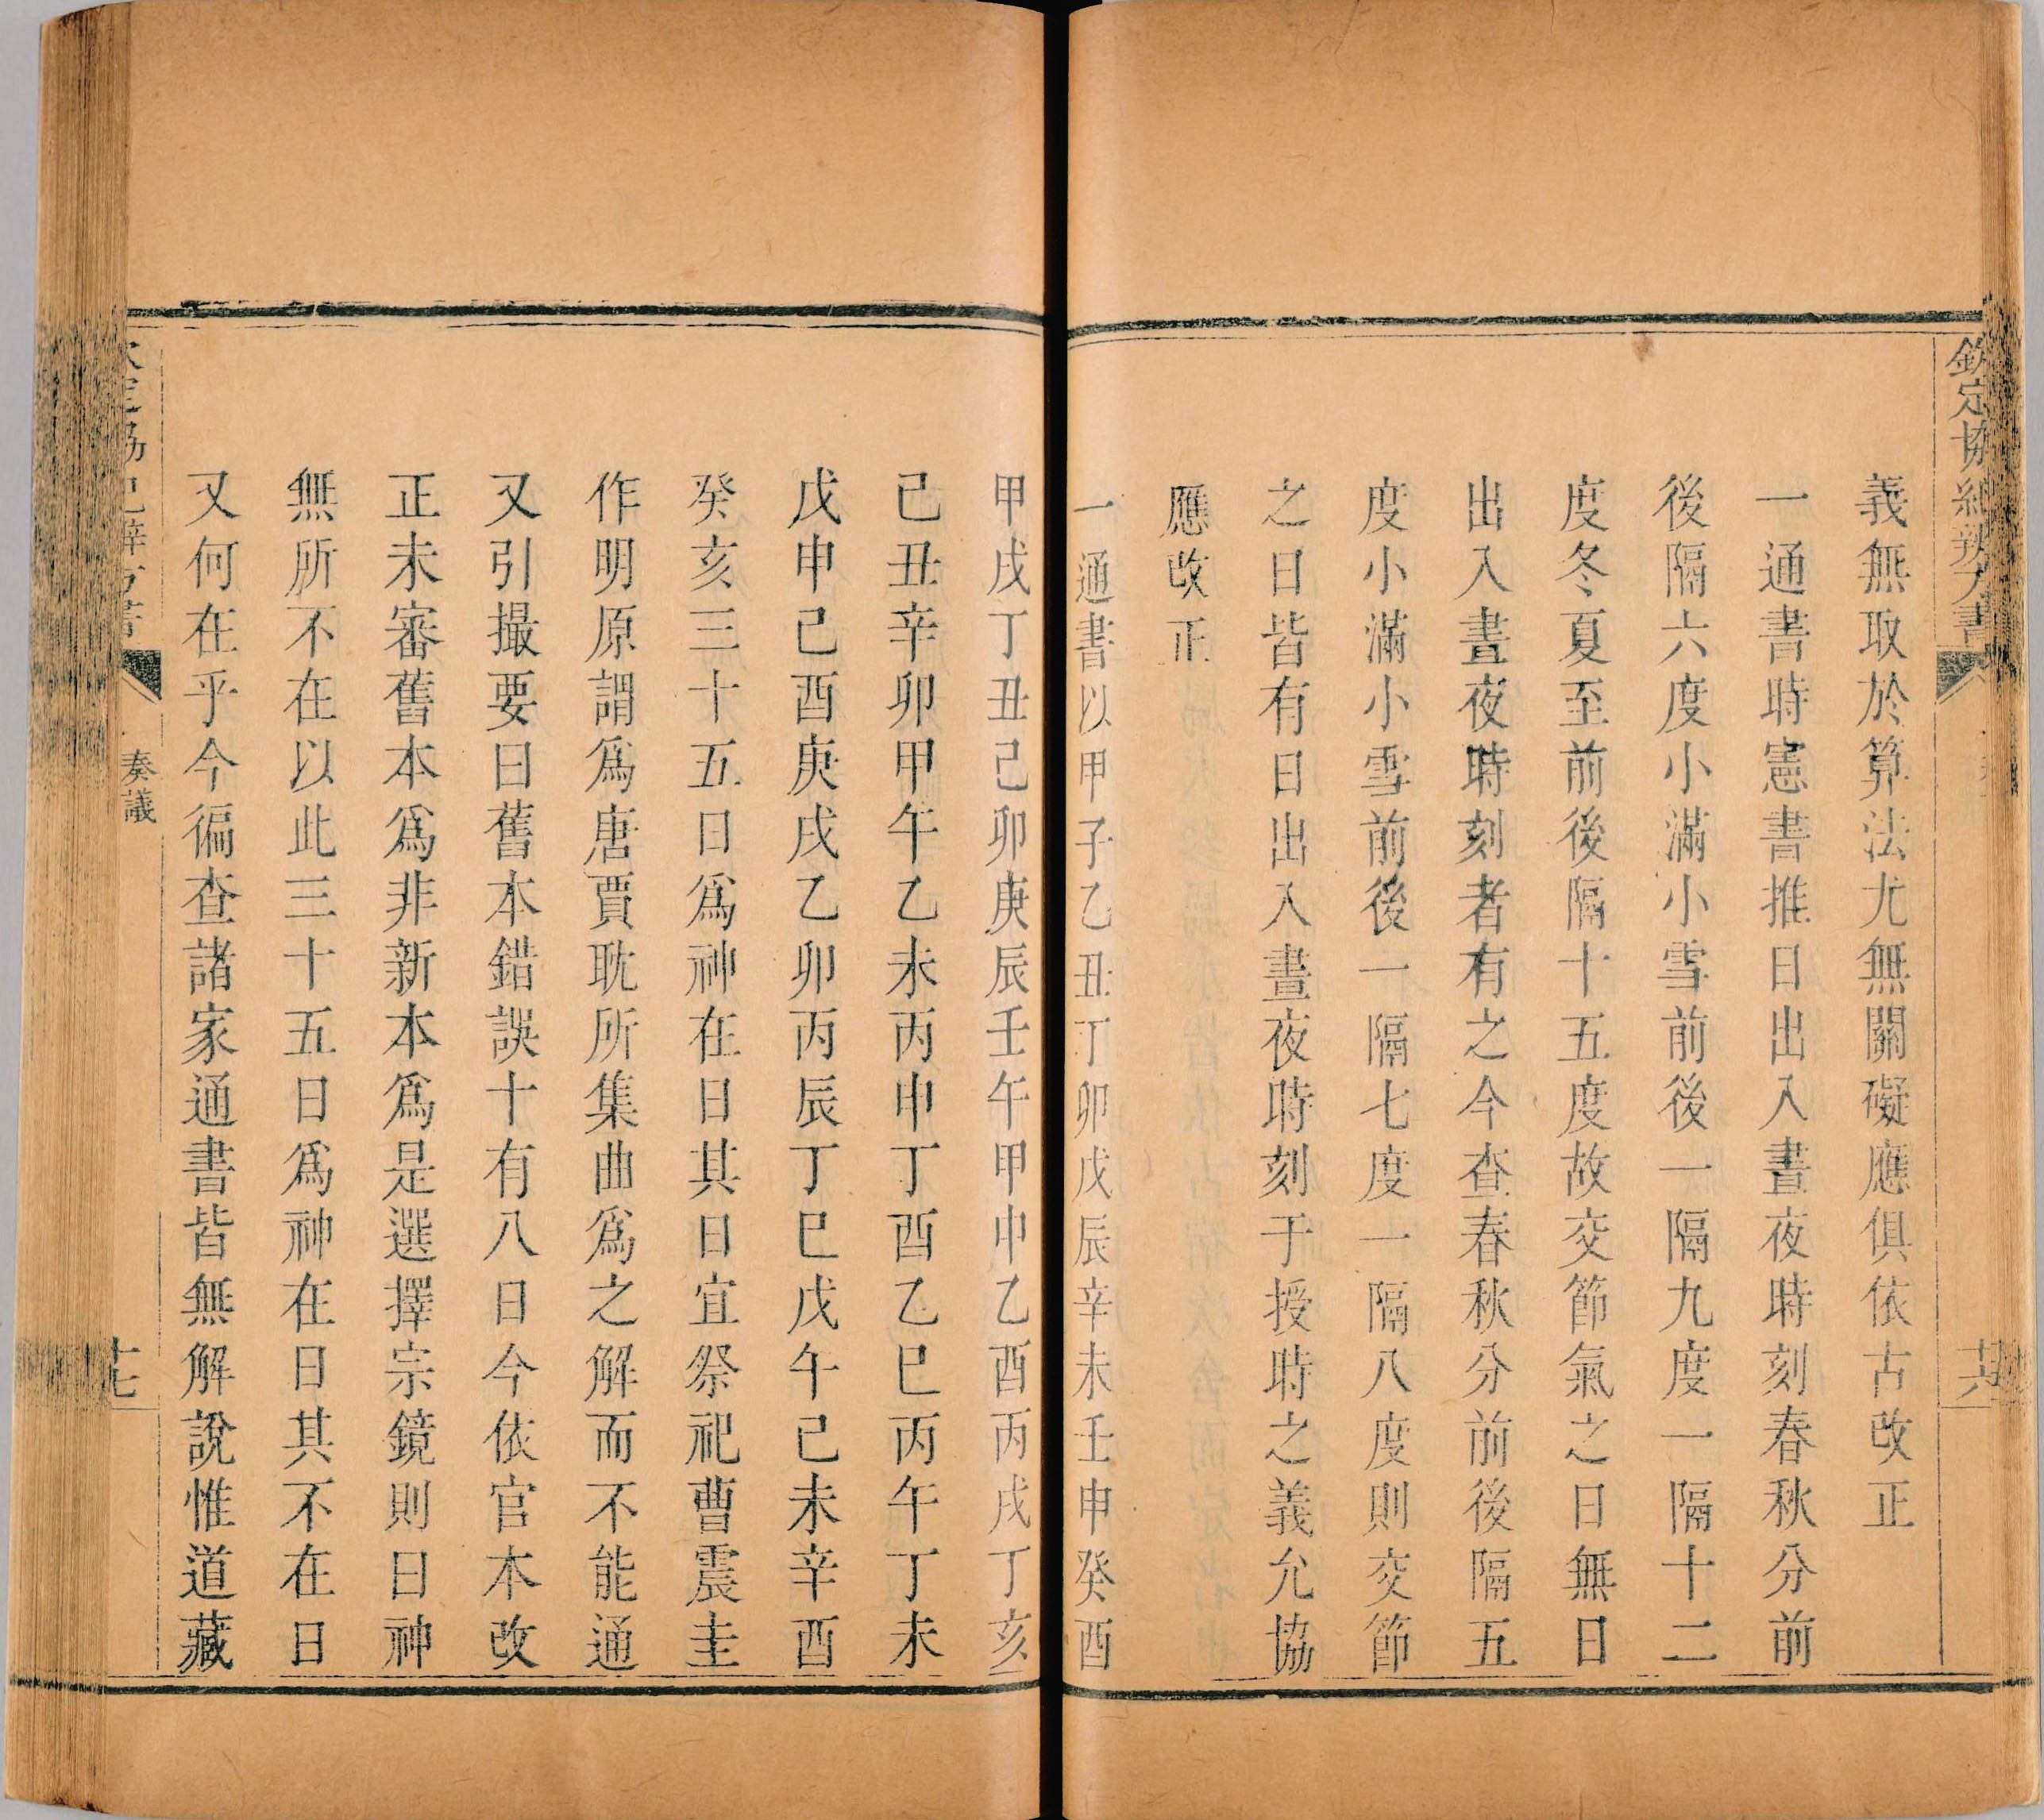 義無取於算法尤無關礙應俱依古改正
一通書時憲書推日出入晝夜時刻春秋分前
後隔六度小滿小雪前後一隔九度一隔十二
度冬夏至前後隔十五度故交節氣之日無日
出入晝夜時刻者有之今查春秋分前後隔五
度小滿小雪前後一隔七度一隔八度則交節
之日皆有日出入晝夜時刻于授時之義允協
應改正
一通書以甲子乙丑丁卯戊辰辛未壬申癸酉
甲戌丁丑己卯庚辰壬午甲申乙酉丙戌丁亥
己丑辛卯甲午乙未丙申丁酉乙巳丙午丁未
戊申己酉庚戌乙卯丙辰丁巳戊午己未辛酉
癸亥三十五日爲神在日其日宜祭祀曹震圭
作明原謂爲唐賈耽所集曲爲之解而不能通
又引撮要曰舊本錯誤十有八日今依官本改
正未審舊本爲非新本爲是選擇宗鏡則曰神
無所不在以此三十五日爲神在日其不在日
又何在乎今徧查諸家通書皆無解說惟道藏
奏議